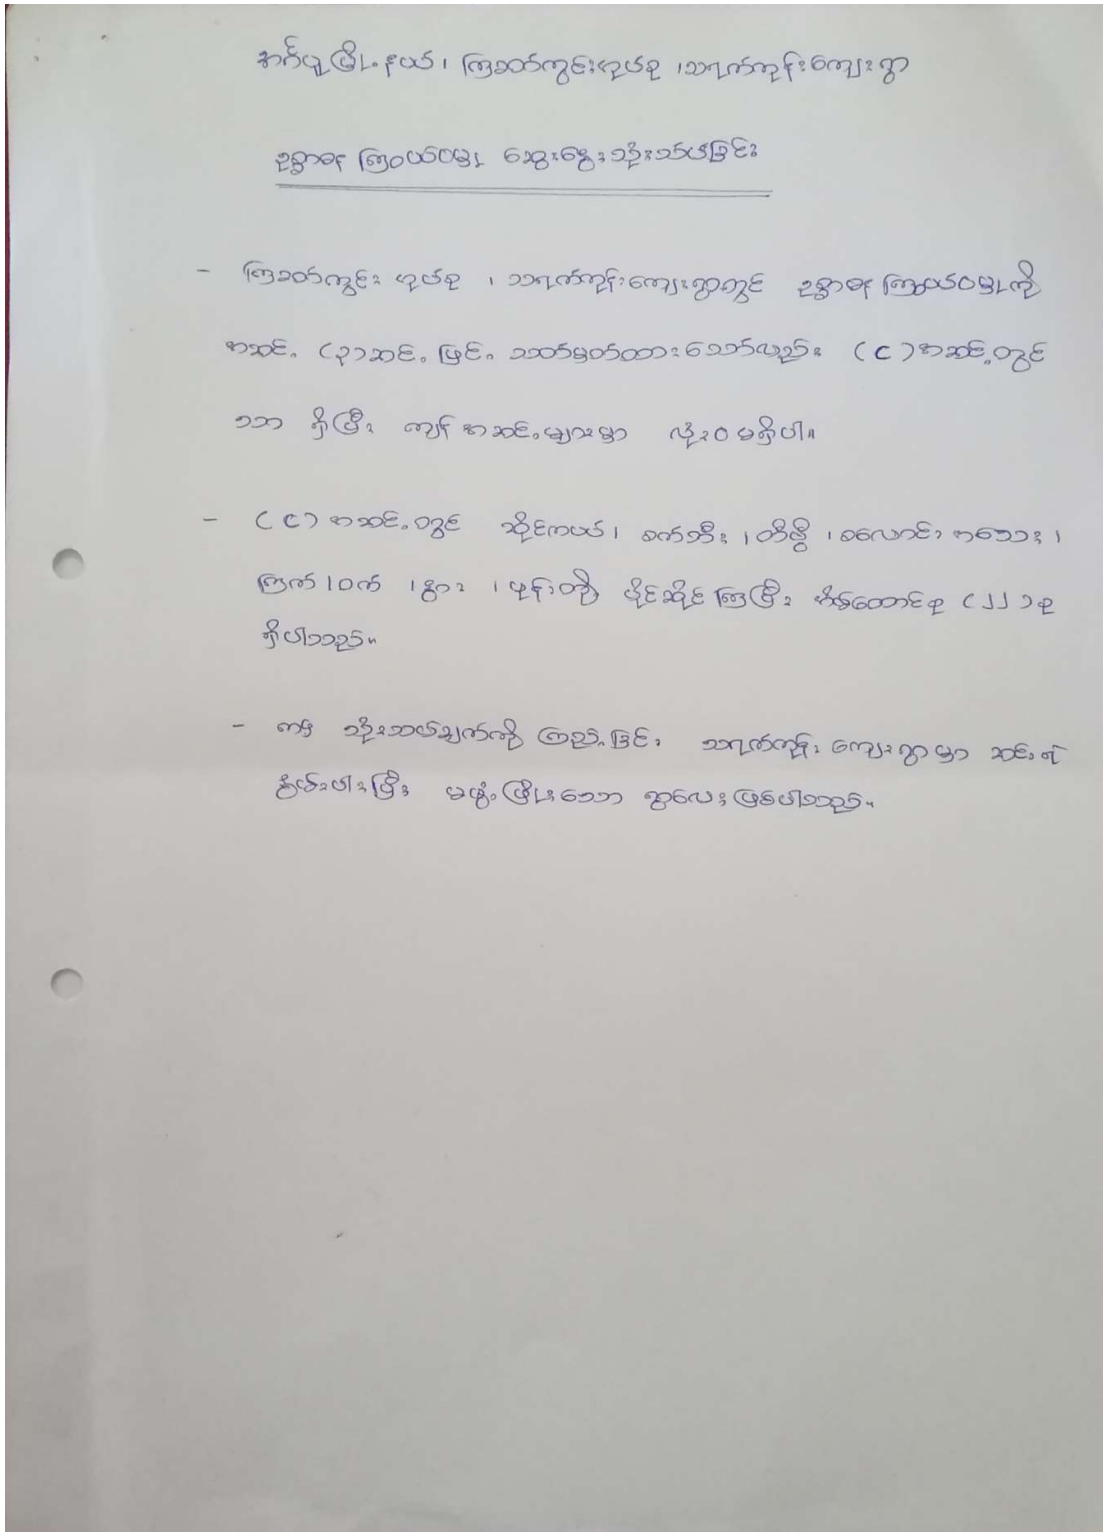 အင်္ဂပူမြို့နယ်၊ ကြာဆတ်ကွင်းအုပ်စု ၊သရက်ကုန်းကျေးရွာ
ဥစ္စာဓန ကြွယ်ဝမှု ဆွေးနွေးသုံးသပ်ခြင်း
- ကြာဆတ်ကွင်း အုပ်စု ၊ သရက်ကုန်းကျေးရွာတွင် ဥစ္စာဓန ကြွယ်ဝမှုကို
အဆင့် (၃)ဆင့် ဖြင့် သတ်မှတ်ထားသော်လည်း (C)အဆင့်တွင်
သာ ရှိပြီး ကျန်အဆင့်များမှာ လုံးဝ မရှိပါ။
- (C)အဆင့်တွင် ဆိုင်ကယ်၊ စက်ဘီး ၊တီဗွီ ၊စလောင်း အသေး ၊
ကြက် ၊ဝက် ၊နွား ၊ဖုန်းတို့ ပိုင်ဆိုင်ကြပြီး အိမ်ထောင်စု (၂၂)စု
ရှိပါသည်။
- ဤ သုံးသပ်ချက်ကို ကြည့်ခြင်း သရက်ကုန်း ကျေးရွာမှာ ဆင်းရဲ
နွမ်းပါးပြီး မဖွံ့ဖြိုးသော ရွာလေးဖြစ်ပါသည်။